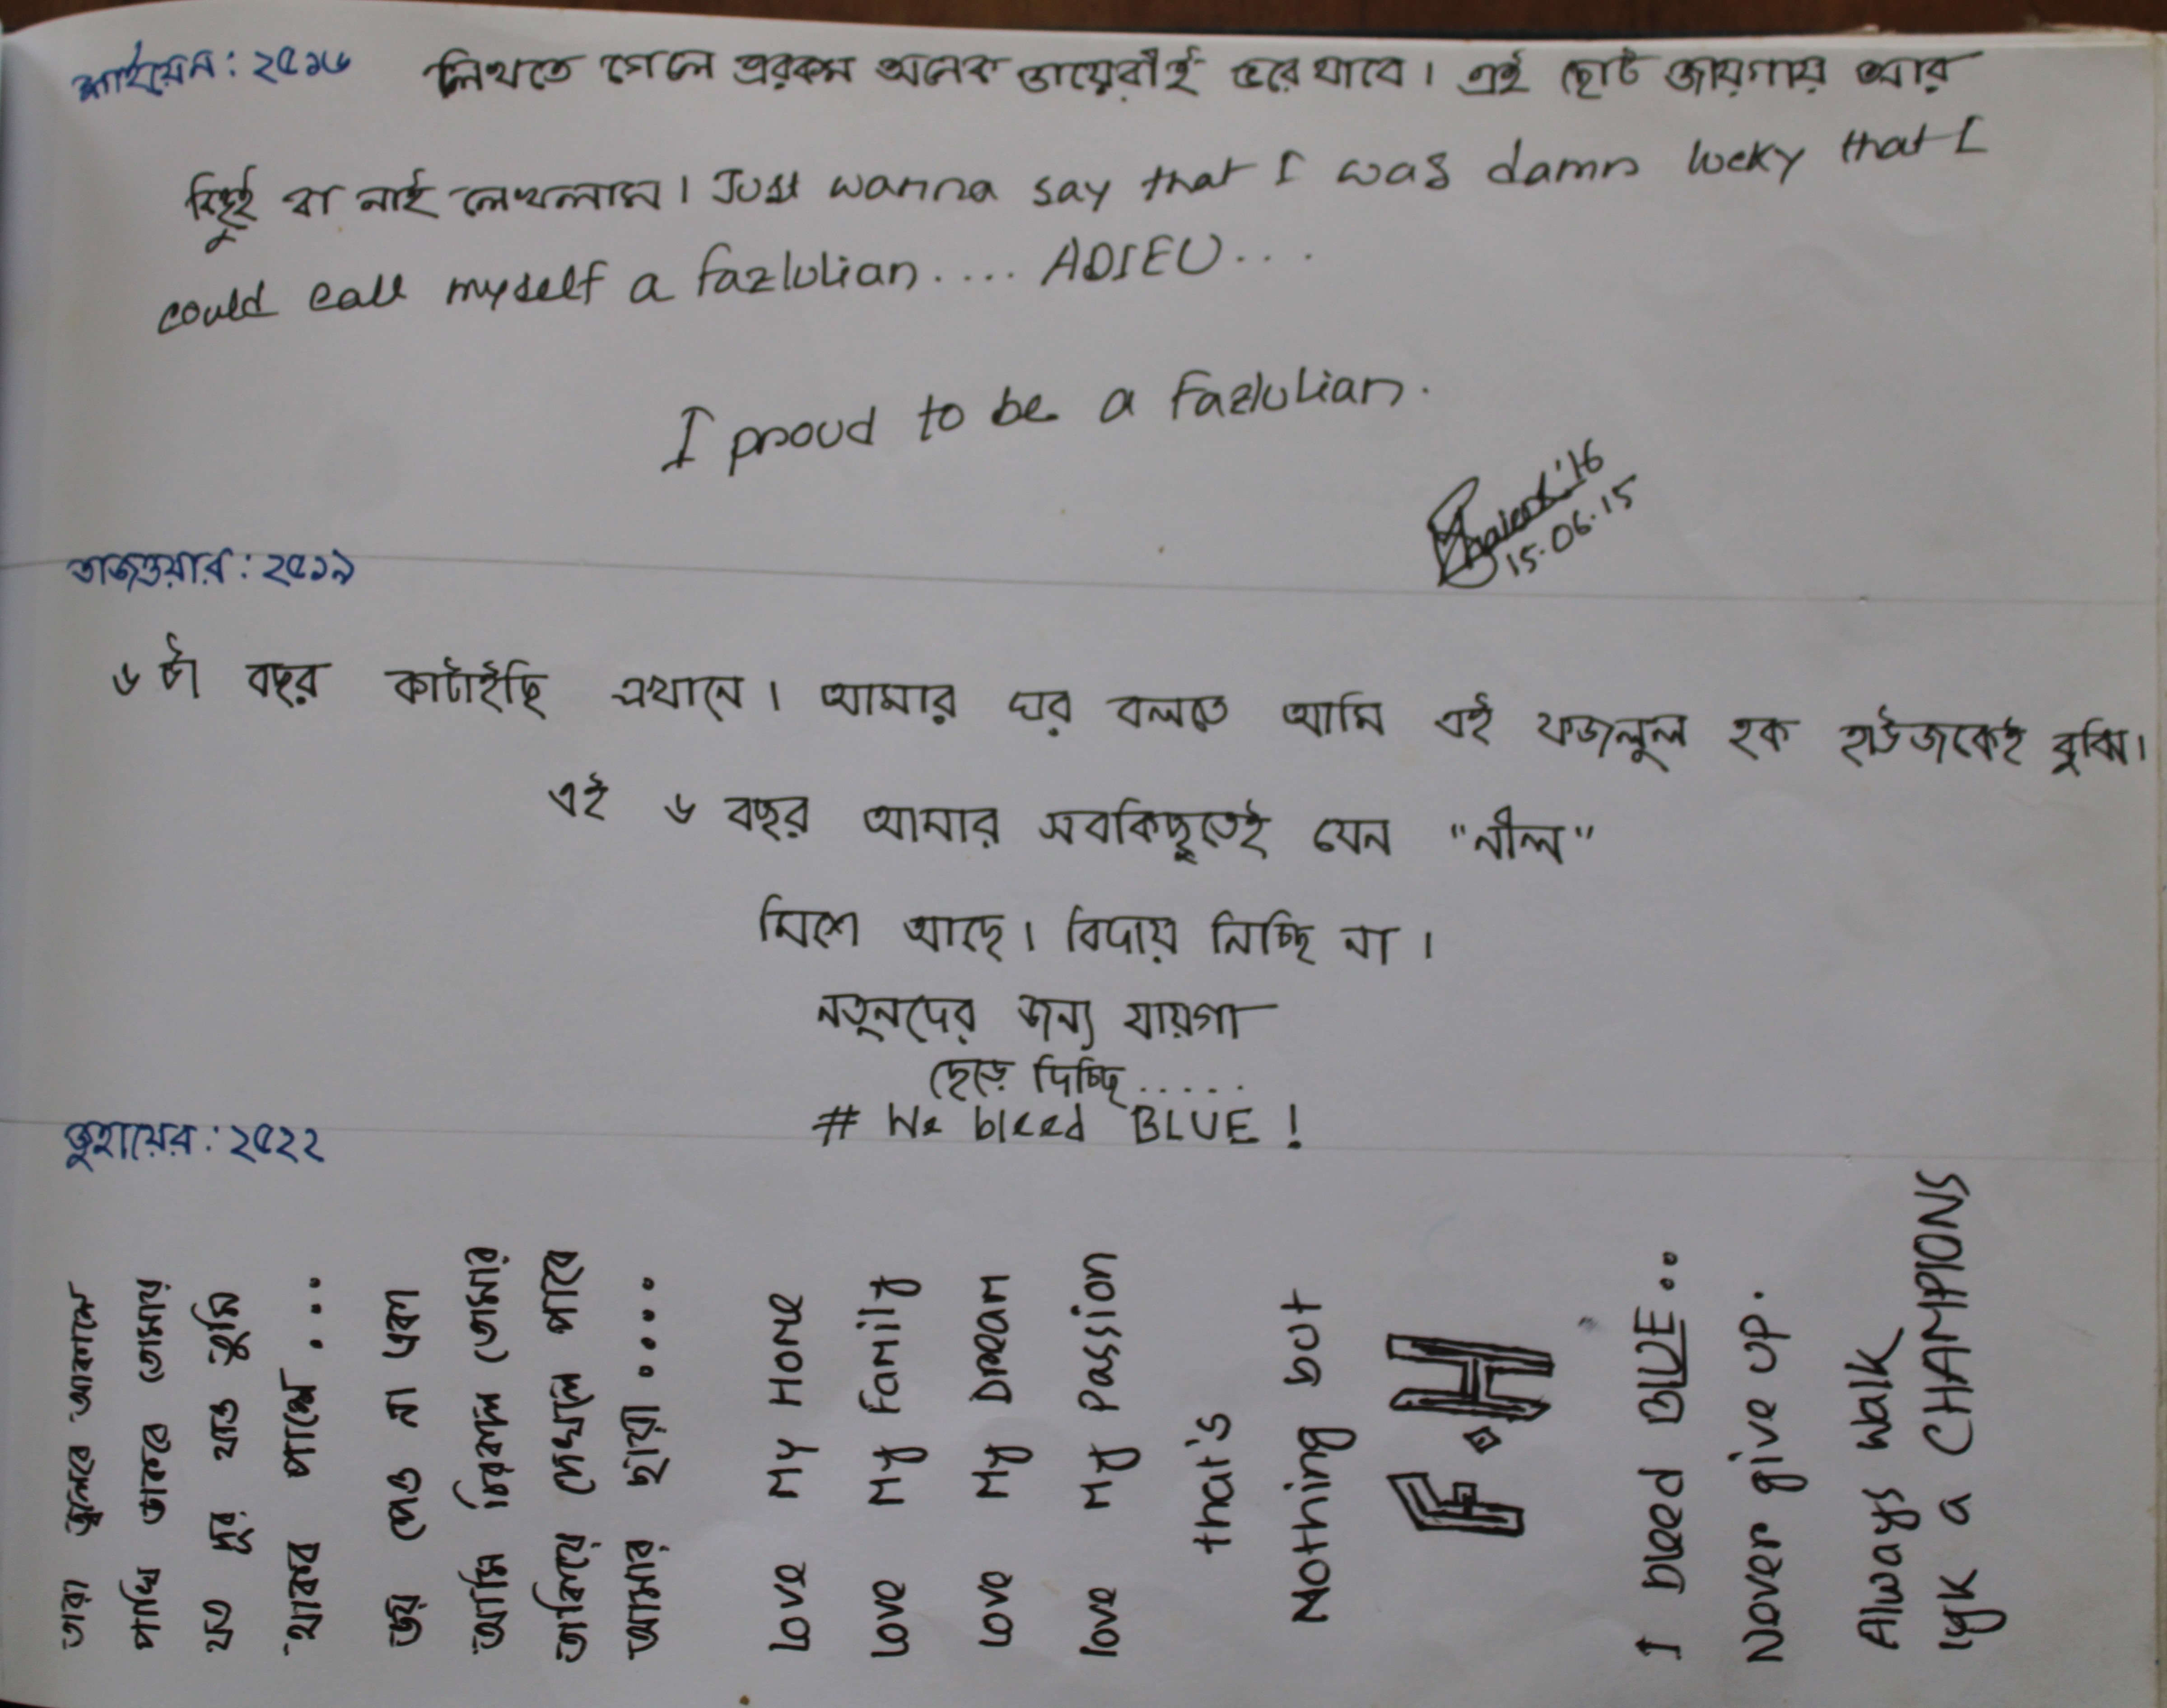 শাইয়েন: ২৫১৬
লিখতে গেলে এরকম অনেক ডায়েরীই ভরে যাবে। এই ছোট জায়গায় আর
কিছুই বা নাই লেখলাম। Just wanna say that I was damn lucky that I
could call myself a fazlulian.... ADIEU...
I proud to be a Fazlulian.
'16
15.06.15
তাজওয়ার: ২৫১৯
৬ টা বছর কাটাইছি এখানে। আমার ঘর বলতে আমি এই ফজলুল হক হাউজকেই বুঝি।
এই ৬ বছর আমার সবকিছুতেই যেন "নীল"
মিশে আছে। বিদায় নিচ্ছি না।
নতুনদের জন্য যায়গা
ছেড়ে দিচ্ছি.....
# We bleed BLUE!
তুহায়ের: ২৫২২
তারা জ্বলবে আকাশে
পাখি ডাকবে তোমায়
যত দূর যাও তুমি
থাকব পাশে...
ভয় পেও না একা
আমি চিরকাল তোমার
তাকিয়ে দেখলে পাবে
আমার ছায়া....
Love My Home
Love My Family
Love My Dream
love My Passion
that's
Nothing but
F.H
I bleed BLUE..
Never give up.
Always Walk
lyk a CHAMPIONS